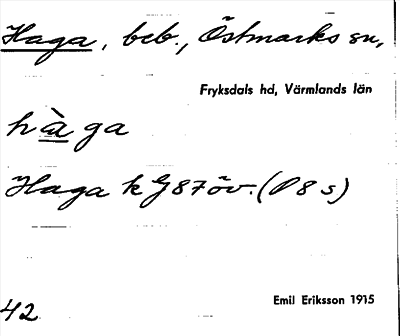 Haga, beb., Östmarks sn,
Fryksdals hd, Värmlands län
hàga
Haga k G87öv. (O8s)
42
Emil Eriksson 1915